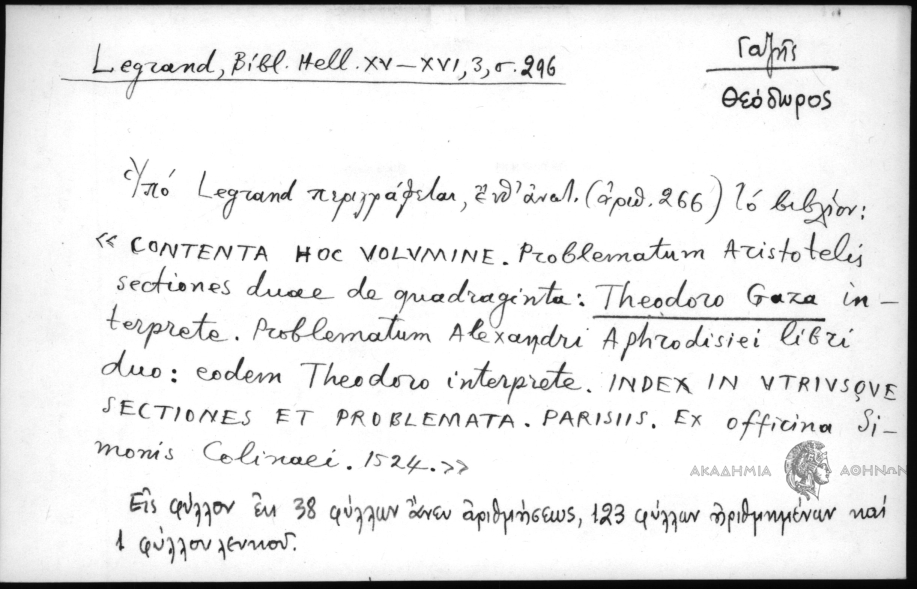 Legrand, Bibl. Hell. XV–XVI, 3, σ. 296
Γαζῆς
Θεόδωρος
Ὑπό Legrand περιγράφεται, ὑπ' ἀνατ. (ἀριθ. 266) τό βιβλίον:
« CONTENTA HOC VOLVMINE. Problematum Aristotelis
sectiones duae de quadraginta: Theodoro Gaza in-
terprete. Problematum Alexandri Aphrodisiei libri
duo: eodem Theodoro interprete. INDEX IN VTRIVSQVE
SECTIONES ET PROBLEMATA. PARISIIS. Ex officina Si-
monis Colinaei. 1524.»
ΑΚΑΔΗΜΙΑ ΑΘΗΝΩΝ
Εἰς φύλλον ἐκ 38 φύλλων ἄνευ ἀριθμήσεως, 123 φύλλων ἠριθμημένων καί
1 φύλλου λευκοῦ.